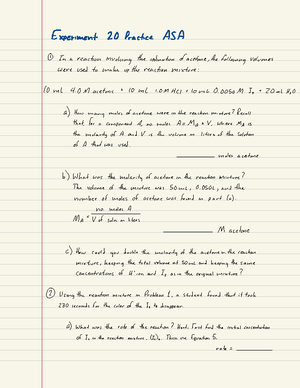 Experiment 20 Practice ASA
① In a reaction involving the iodination of acetone, the following volumes
were used to make up the reaction mixture:
10 mL 4.0 M acetone + 10 mL 1.0 M HCl + 10 mL 0.0050 M I₂ + 20 mL H₂O
a) How many moles of acetone were in the reaction mixture? Recall
that for a component A, no. moles A = M_A × V, where M_A is
the molarity of A and V is the volume in liters of the solution
of A that was used.
moles acetone
b) What was the molarity of acetone in the reaction mixture?
The volume of the mixture was 50 mL, 0.050 L, and the
number of moles of acetone was found in part (a).
M_A = no. moles A / V of soln. in liters
M acetone
c) How could you double the molarity of the acetone in the reaction
mixture, keeping the total volume at 50 mL and keeping the same
concentrations of H⁺ ion and I₂ as in the original mixture?
② Using the reaction mixture in Problem 1, a student found that it took
230 seconds for the color of the I₂ to disappear.
a) What was the rate of the reaction? Hint: First find the initial concentration
of I₂ in the reaction mixture, (I₂)₀. Then use Equation 5.
rate =